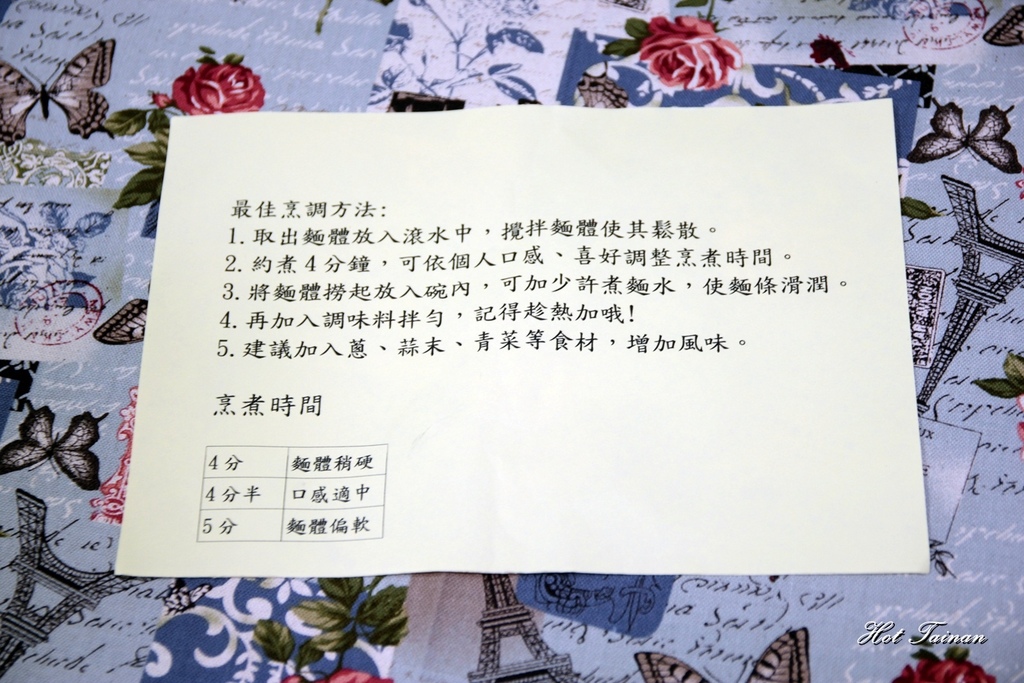 最佳烹調方法:
1. 取出麵體放入滾水中，攪拌麵體使其鬆散。
2. 約煮 4 分鐘，可依個人口感、喜好調整烹煮時間。
3. 將麵體撈起放入碗內，可加少許煮麵水，使麵條滑潤。
4. 再加入調味料拌勻，記得趁熱加哦!
5. 建議加入蔥、蒜末、青菜等食材，增加風味。
烹煮時間
4 分 麵體稍硬
4 分半 口感適中
5 分 麵體偏軟
Hot Tainan